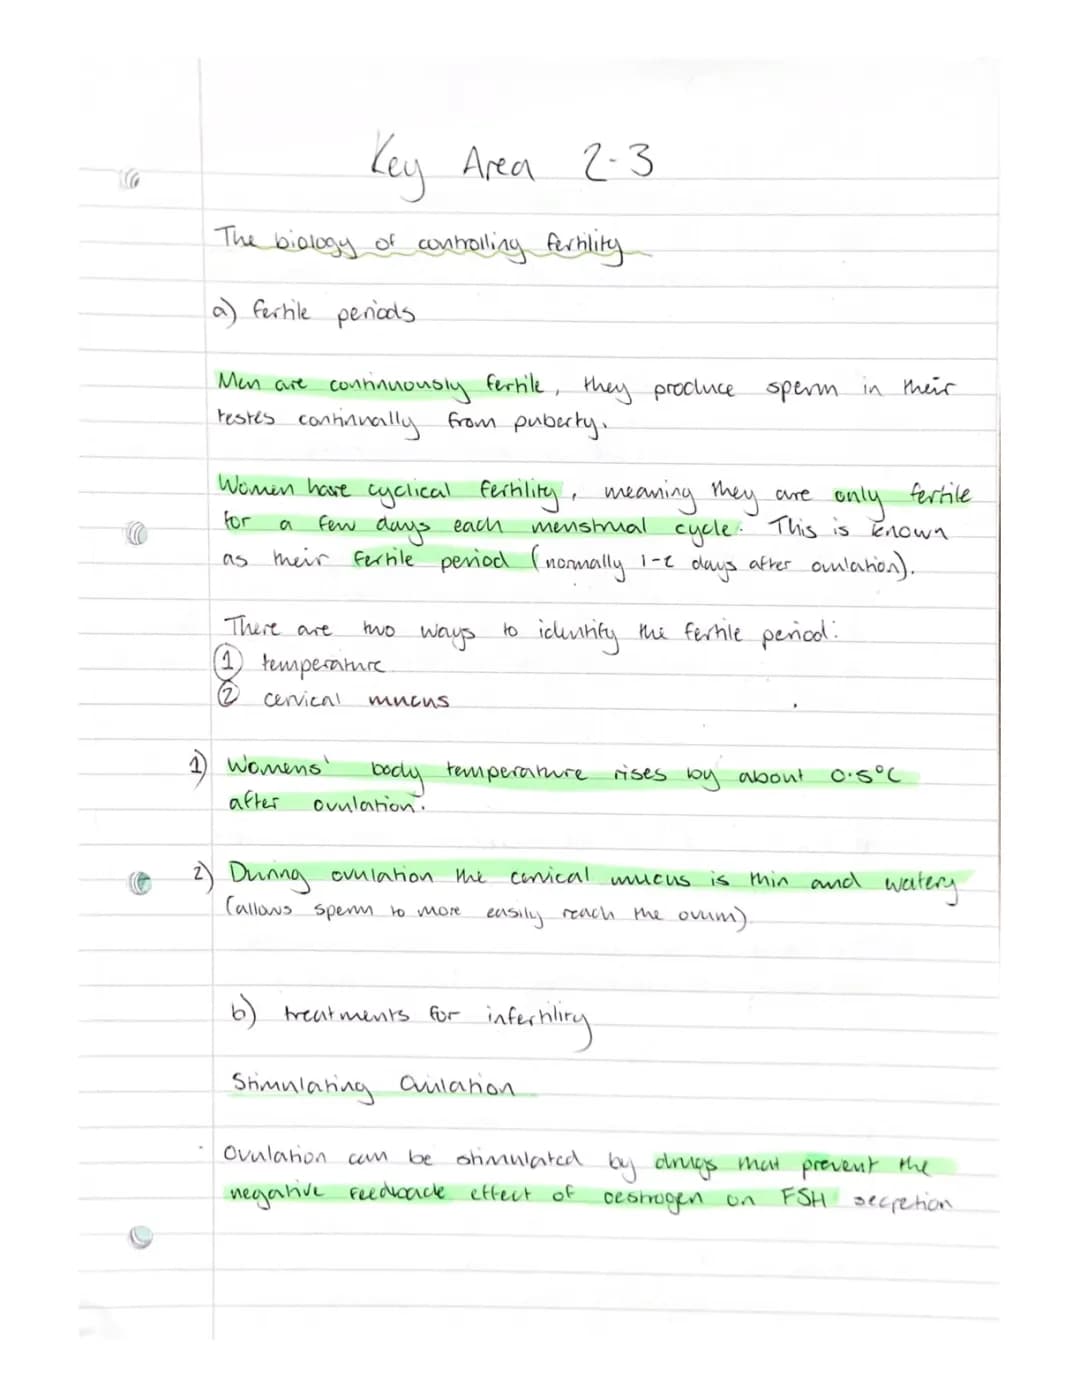 Key Area 2.3
The biology of controlling fertility
a) fertile periods
Men are continuously fertile, they produce sperm in their
testes continually from puberty.
Women have cyclical fertility, meaning they are only fertile
for a few days each menstrual cycle. This is known
as their fertile period (normally 1-2 days after ovulation).
There are two ways to identify the fertile period:
① temperature
② cervical mucus
1) Womens' body temperature rises by about 0.5°C
after ovulation.
2) During ovulation the cervical mucus is thin and watery
(allows sperm to more easily reach the ovum)
b) treatments for infertility
Stimulating Ovulation
· Ovulation can be stimulated by drugs that prevent the
negative feedback effect of oestrogen on FSH secretion